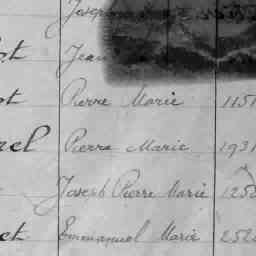 Joseph
Jean
ot Pierre Marie 1151
rel Pierre Marie 1931
Joseph Pierre Marie 125
et Emmanuel Marie 252